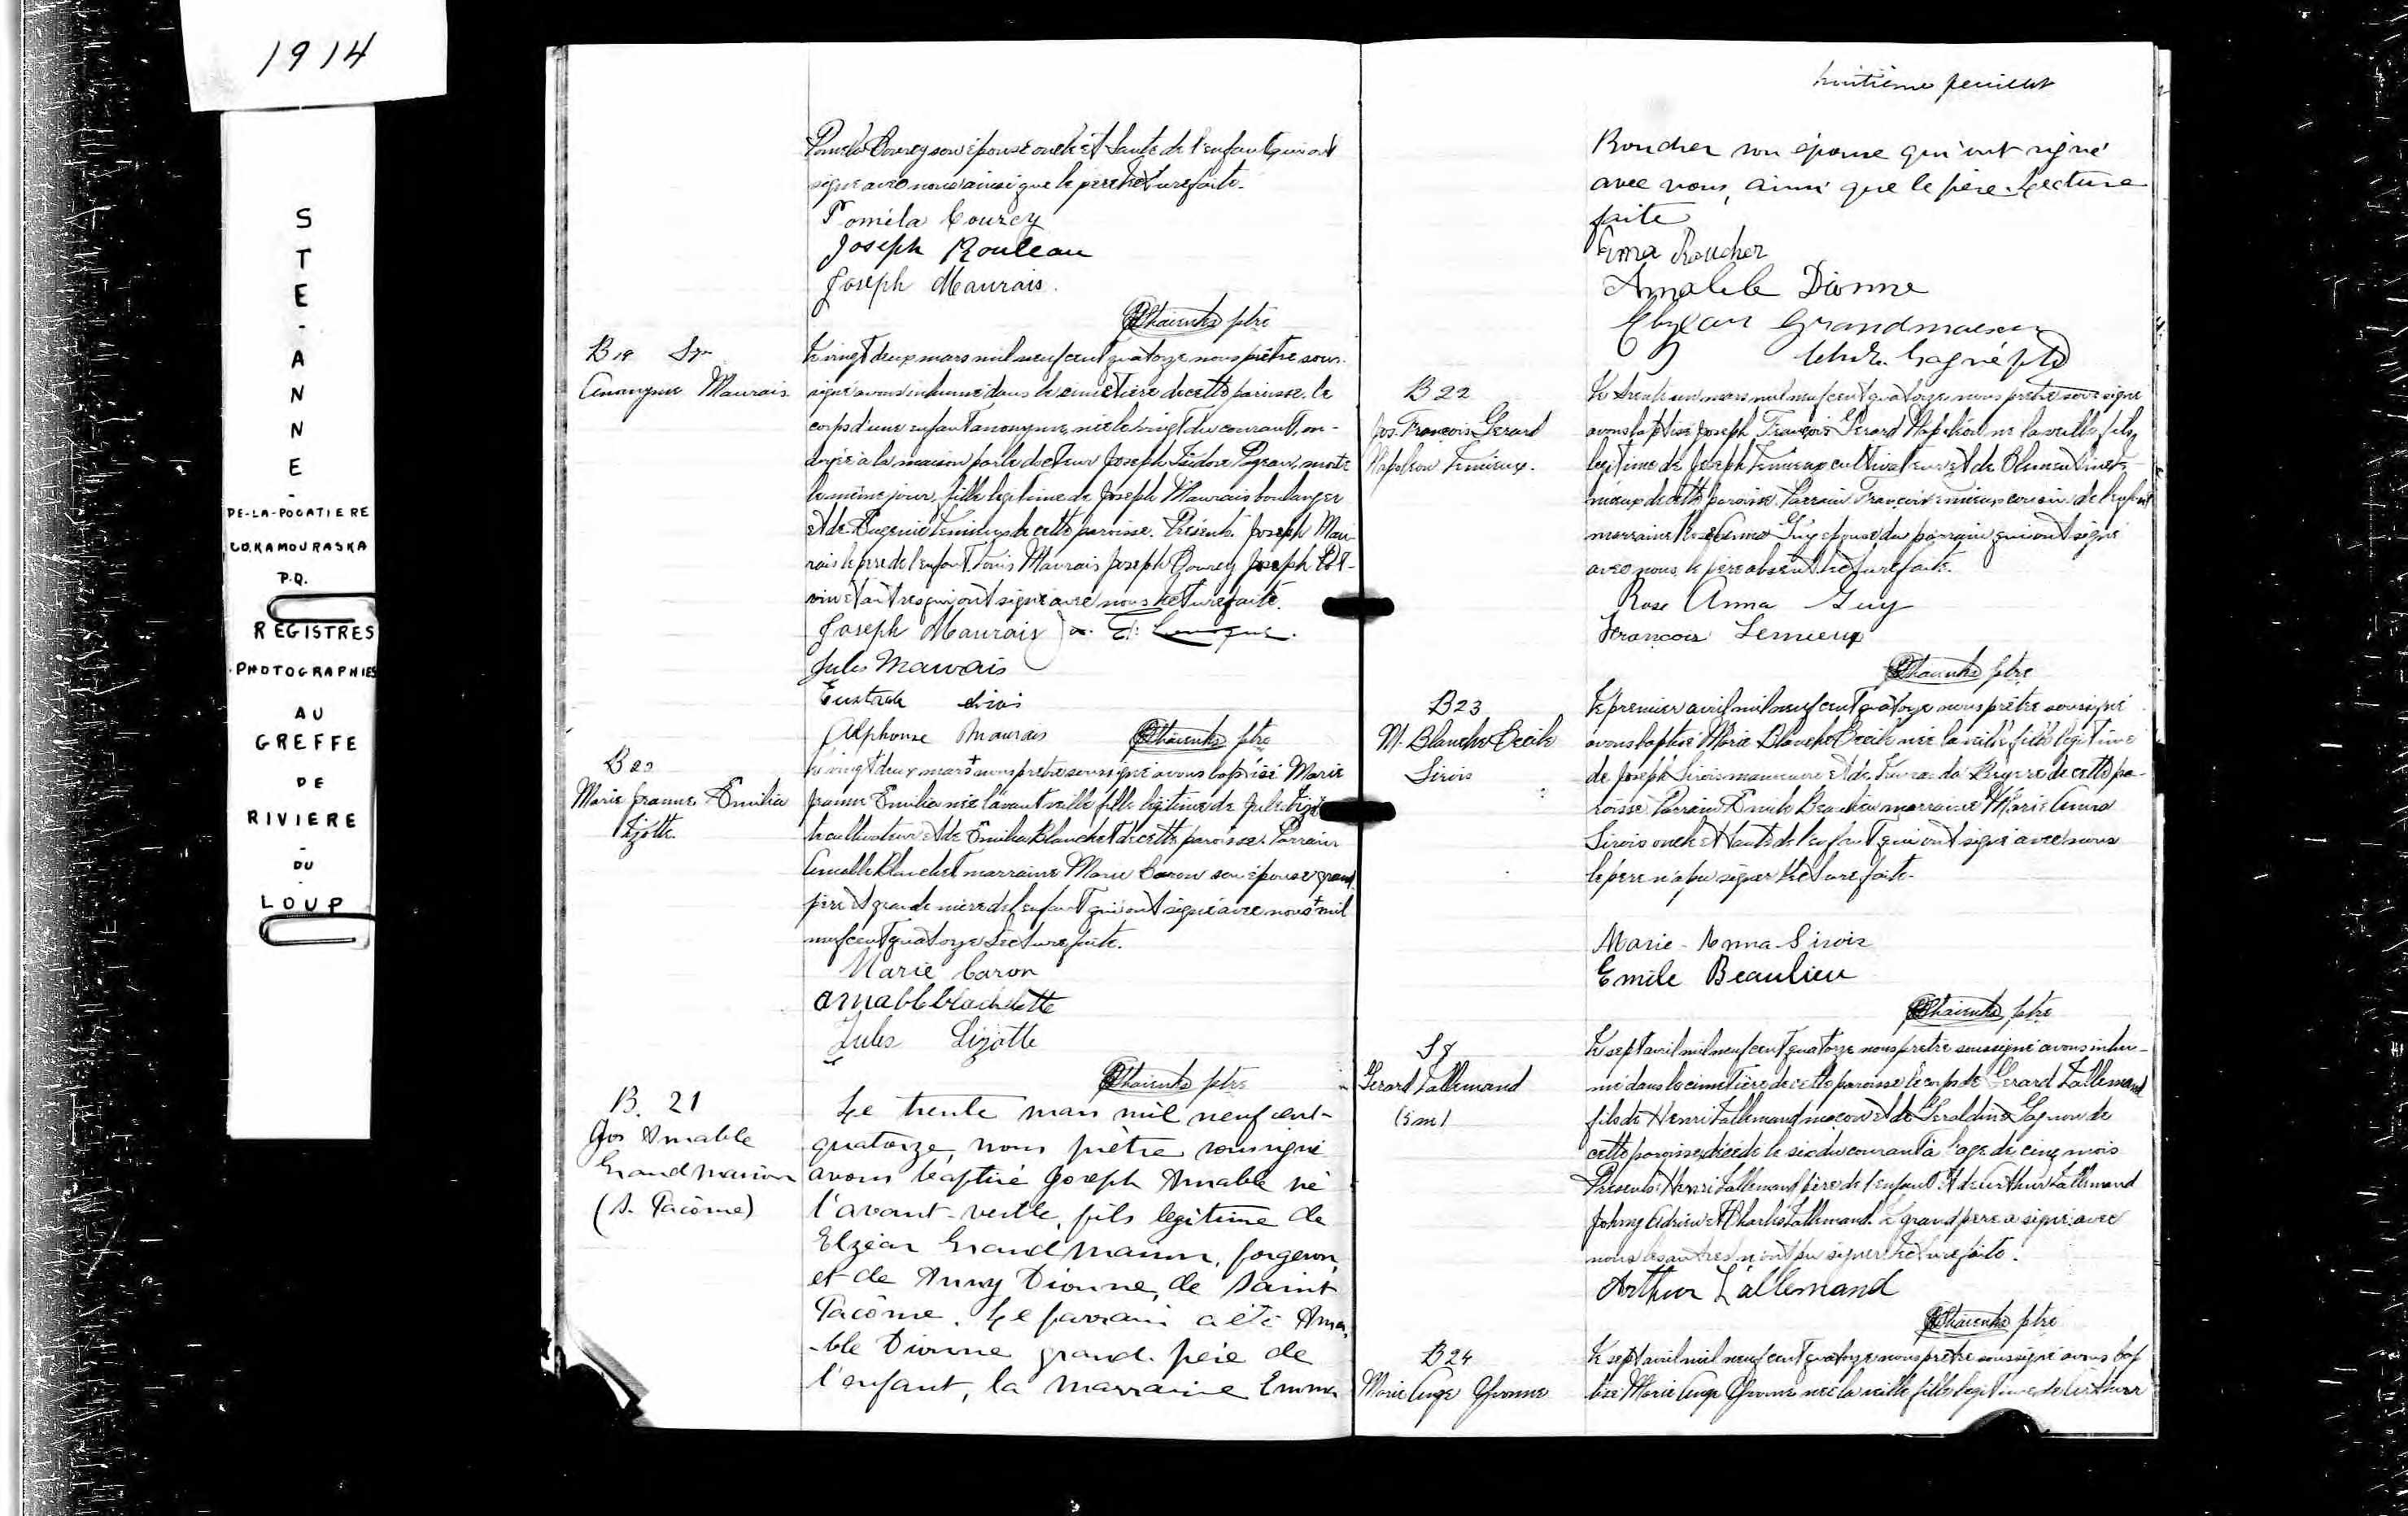 1914
STE-ANNE-
DE-LA-POCATIERE
CO. KAMOURASKA
P.Q.
REGISTRES
PHOTOGRAPHIES
AU
GREFFE
DE
RIVIERE
-
DU
LOUP
Courcy son épouse oncle et tante de l'enfant qui ont
signé avec nous ainsi que le père. Lecture faite.
Poméla Courcy
Joseph Rouleau
Joseph Maurais.
ptre
B19
Anonyme Maurais
Le vingt deux mars mil neuf cent quatorze nous prêtre sous-
signé avons inhumé dans le cimetière de cette paroisse, le
corps d'une enfant anonyme, née le vingt du courant, on-
doyée à la maison par le docteur Joseph Isidore morte
le même jour, fille légitime de Joseph Maurais boulanger
et de Eugenie Lemieux de cette paroisse. Présents: Joseph Mau-
rais le père de l'enfant, Maurais Joseph Courcy Joseph
et autres qui ont signé avec nous. Lecture faite.
Joseph Maurais
Jules Maurais
Alphonse Maurais ptre
B20
Marie Jeanne Emilia
Lizotte
Le vingt deux mars + nous prêtre soussigné avons baptisé Marie
Jeanne Emilia née l'avant veille fille légitime de Jules Lizot-
te cultivateur et de Emilia Blanchet de cette paroisse. Parrain
Amable Blanchet marraine Marie Caron son épouse grand
père et grande mère de l'enfant qui ont signé avec nous + mil
neuf cent quatorze Lecture faite.
Marie Caron
amable blachette
Jules Lizotte
ptre
B. 21
Jos Amable
Grandmaison
(S. Pacôme)
Le trente mars mil neuf cent-
quatorze, nous prêtre soussigné
avons baptisé Joseph Amable né
l'avant-veille, fils legitime de
Elzéar Grandmaison, forgeron,
et de Anny Dionne, de Saint
Pacôme. Le parrain a été Ama-
-ble Dionne grand-père de
l'enfant, la marraine Emma
huitième feuillet
Boucher son épouse qui ont signé
avec nous, ainsi que le père. Lecture
faite
Ema Boucher
Amable Dionne
Elzéar Grandmaison
Gagné ptre
B22
Jos. François Gerard
Napoléon Lemieux.
Le trente un mars mil neuf cent quatorze nous prêtre soussigné
avons baptisé Joseph François Gerard Napoléon né la veille fils
legitime de Joseph Lemieux cultivateur et de
de cette paroisse. Parrain François Lemieux cousin de l'enfant
marraine Rose Anna Guy épouse du parrain qui ont signé
avec nous, le père absent. Lecture faite.
Rose Anna Guy
François Lemieux
ptre
B23
M. Blanche Cecile
Sirois
Le premier avril mil neuf cent quatorze nous prêtre soussigné
avons baptisé Marie Blanche Cecile née la veille fille legitime
de Joseph Sirois et de de cette pa-
roisse. Parrain Emile Beaulieu marraine Marie Anna
Sirois oncle et tante de l'enfant qui ont signé avec nous
le père n'a pu signer Lecture faite.
Marie-Anna Sirois
Emile Beaulieu
ptre
S8
Gerard Lallemand
(5 m)
Le sept avril mil neuf cent quatorze nous prêtre soussigné avons inhu-
mé dans le cimetière de cette paroisse le corps de Gerard Lallemand
fils de Henri Lallemand maçon et de Geraldine Gagnon de
cette paroisse, décédé le six du courant à l'age de cinq mois
Présents: Henri Lallemand père de l'enfant et de Arthur Lallemand
Johny Adrien et Charles Lallemand. Le grand père a signé avec
nous les autres n'ont pu signer Lecture faite.
Arthur Lallemand
ptre
B24
Marie Ange Yvonne
Le sept avril mil neuf cent quatorze nous prêtre soussigné avons bap
tisé Marie Ange Yvonne née la veille fille legitime de Arthur